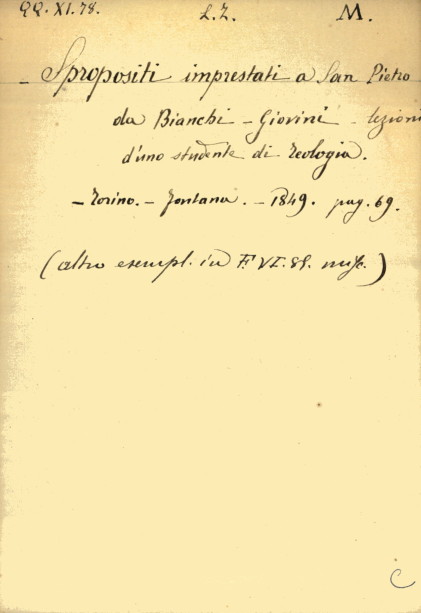 QQ. XI. 78. L. Z. M.
- Spropositi imprestati a San Pietro
da Bianchi - Giovini - lezioni
d'uno studente di Teologia.
- Torino. - Fontana. - 1849. pag. 69.
(altro esempl. in F. VI. 88. misc.)
C